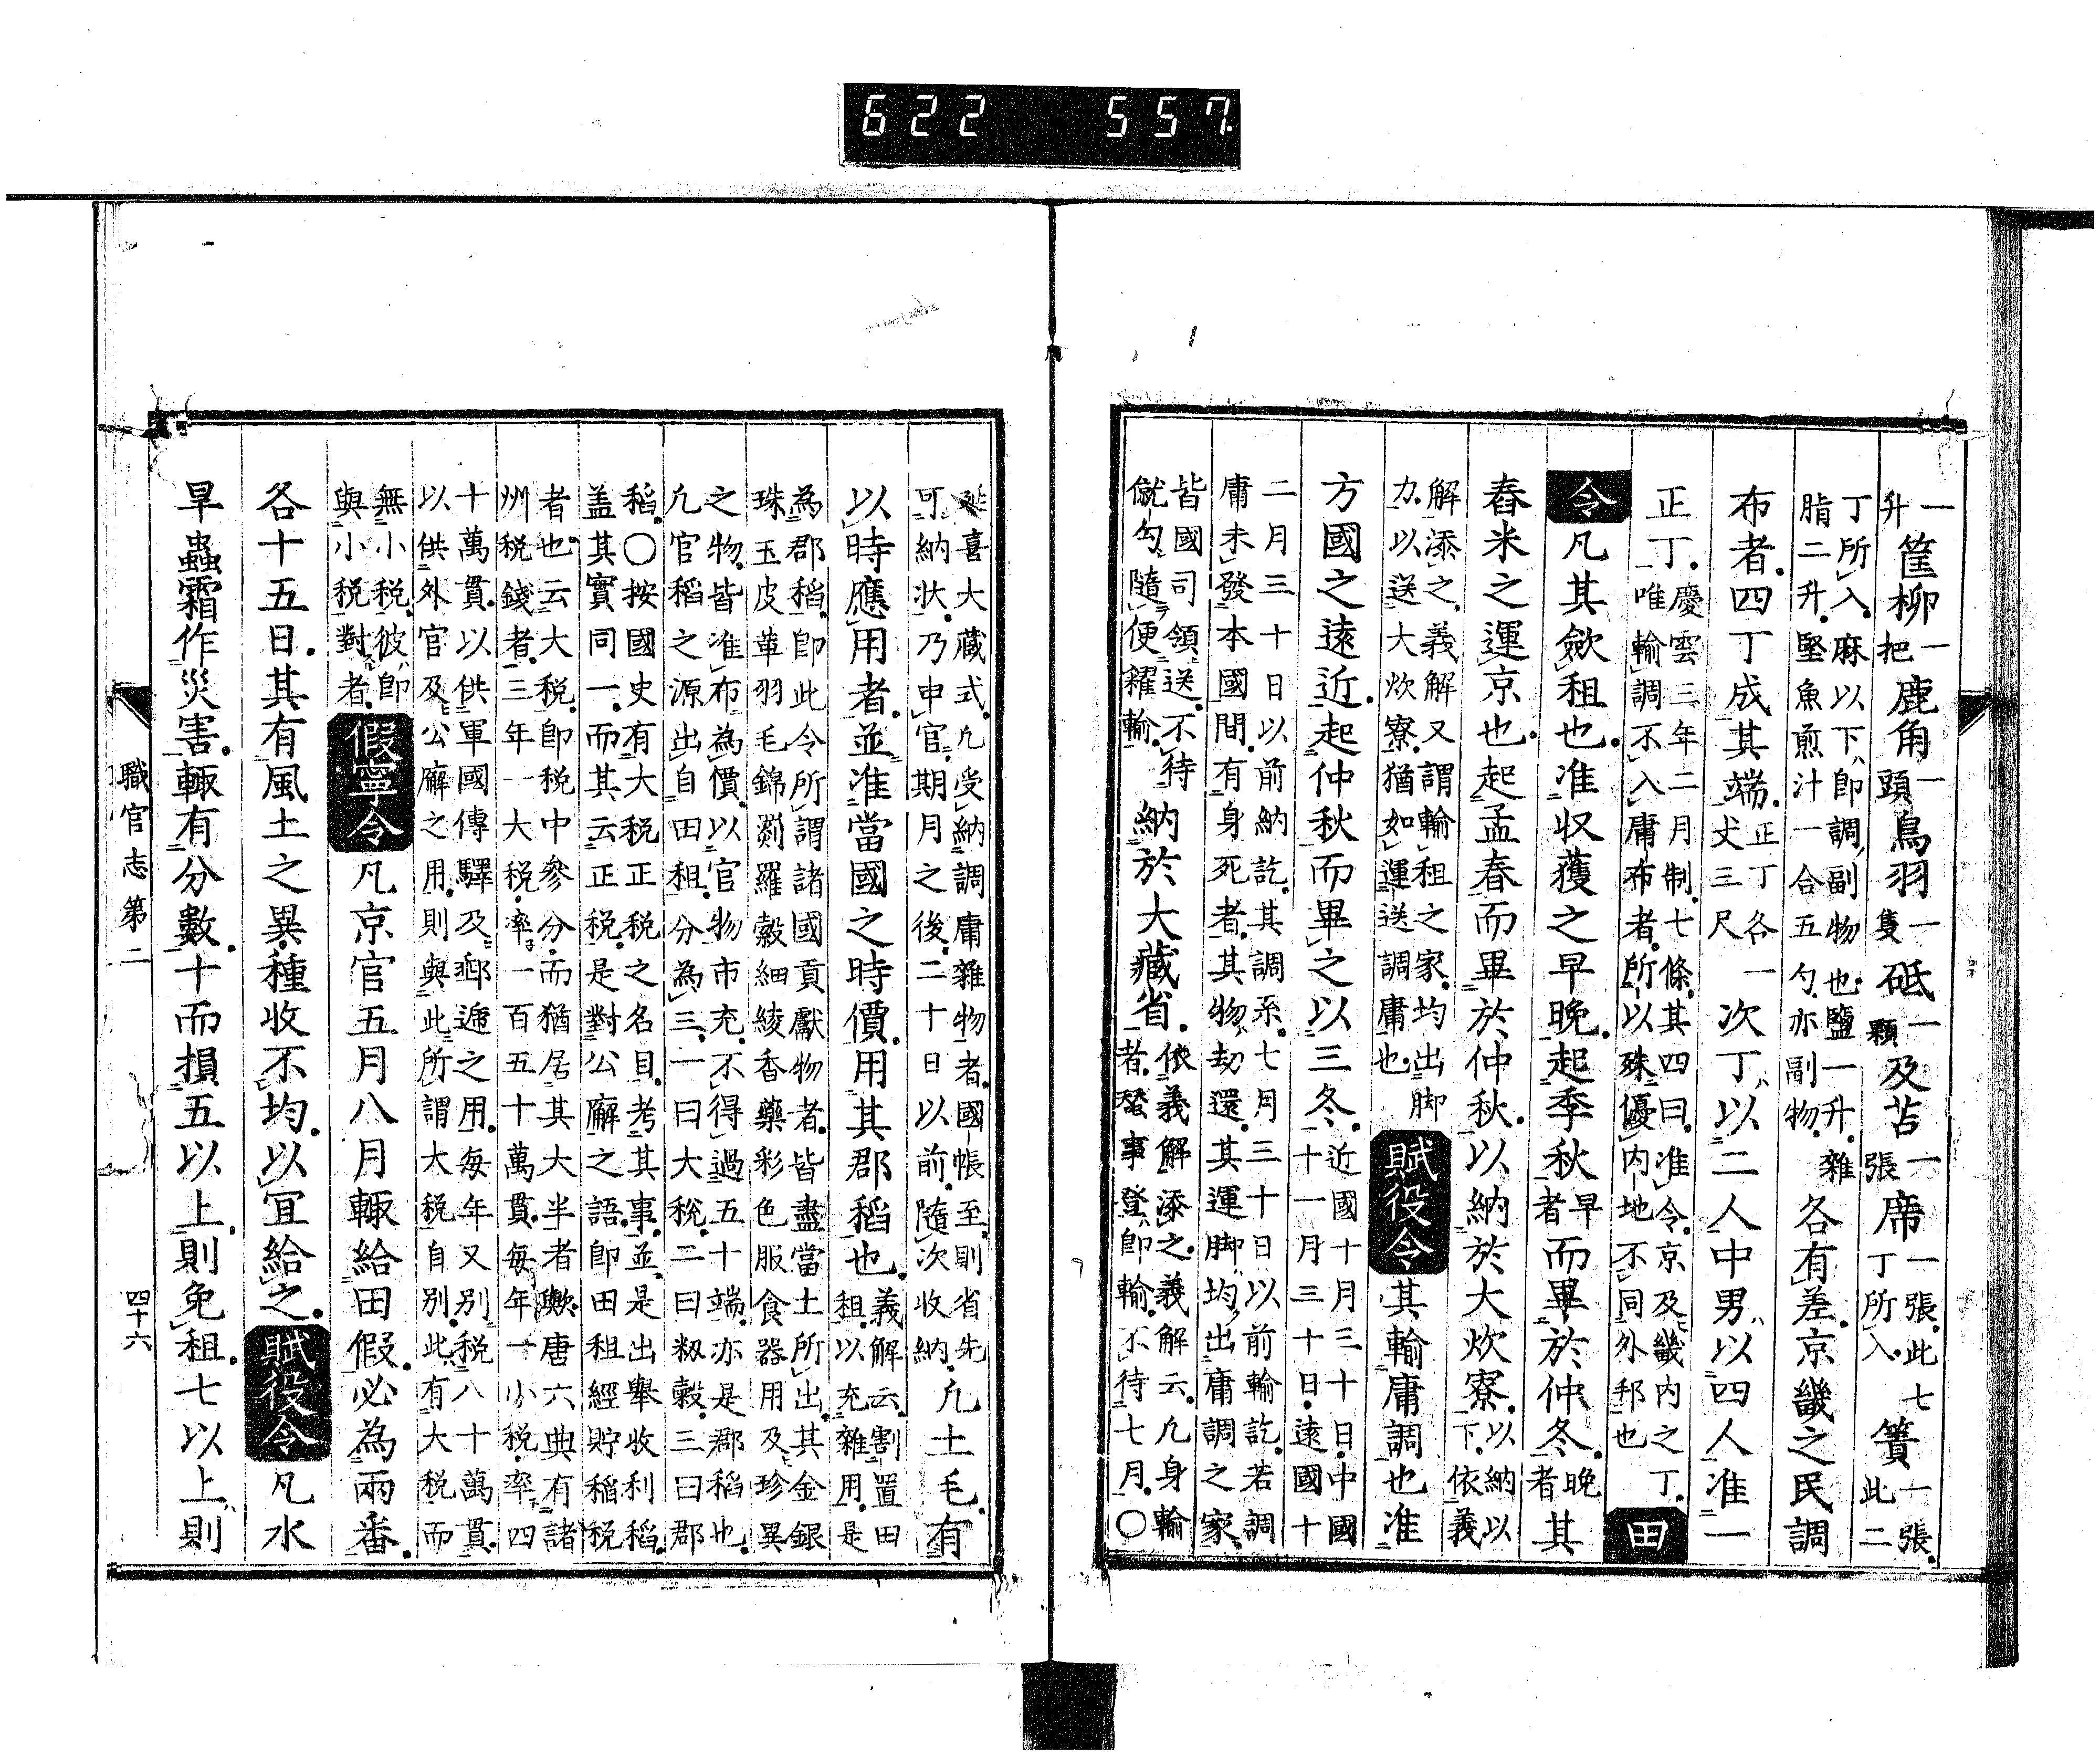 622 557
一筐柳一把鹿角一頭鳥羽一隻砥一顆及苫一張席一張此七丁所入簀一張此二
丁所入麻以下即調副物也鹽一升雜脂二升堅魚煎汁一合五勺亦副物各有差京畿之民調
布者四丁成其端正丁各一丈三尺次丁以二人中男以四人准一
正丁慶雲三年二月制七條其四曰准令京及畿内之丁唯輸調不入庸布者所以殊優内地不同外邦也田
令凡其斂租也准収獲之早晚起季秋早者而畢於仲冬晚者其
舂米之運京也起孟春而畢於仲秋以納於大炊寮以納以下依義
解添之義解又謂輸租之家均出脚力以送大炊寮猶如運送調庸也賦役令其輸庸調也准
方國之遠近起仲秋而畢之以三冬近國十月三十日中國十一月三十日遠國十
二月三十日以前納訖其調糸七月三十日以前輸訖若調庸未發本國間有身死者其物却還其運脚均出庸調之家
皆國司領送不待僦勾隨便糴輸納於大藏省依義解添之義解云凡身輸者發事登即輸不待七月〇
喜大藏式凡受納調庸雜物者國帳至則省先可納狀乃申官期月之後二十日以前隨次收納凡土毛有
以時應用者並准當國之時價用其郡稻也義解云割置田租以充雜用是
為郡稻即此令所謂諸國貢獻物者皆盡當土所出其金銀珠玉皮革羽毛錦罽羅縠紬綾香藥彩色服食器用及珍異
之物皆准布為價以官物市充不得過五十端亦是郡稻也凡官稻之源出自田租分為三一曰大稅二曰籾穀三曰郡
稻〇按國史有大税正税之名目考其事並是出舉收利稻盖其實同一而其云正税是對公廨之語即田租經貯稻税
者也云大税即税中參分而猶居其大半者歟唐六典有諸州税錢者三年一大税率一百五十萬貫每年一小税率四
十萬貫以供軍國傳驛及郵遞之用每年又別税八十萬貫以供外官及公廨之用則與此所謂大税自別此有大税而
無小税彼即與小税對者假寧令凡京官五月八月輙給田假必為兩番
各十五日其有風土之異種收不均以宜給之賦役令凡水
旱蟲霜作災害輙有分數十而損五以上則免租七以上則
職官志第二
四十六